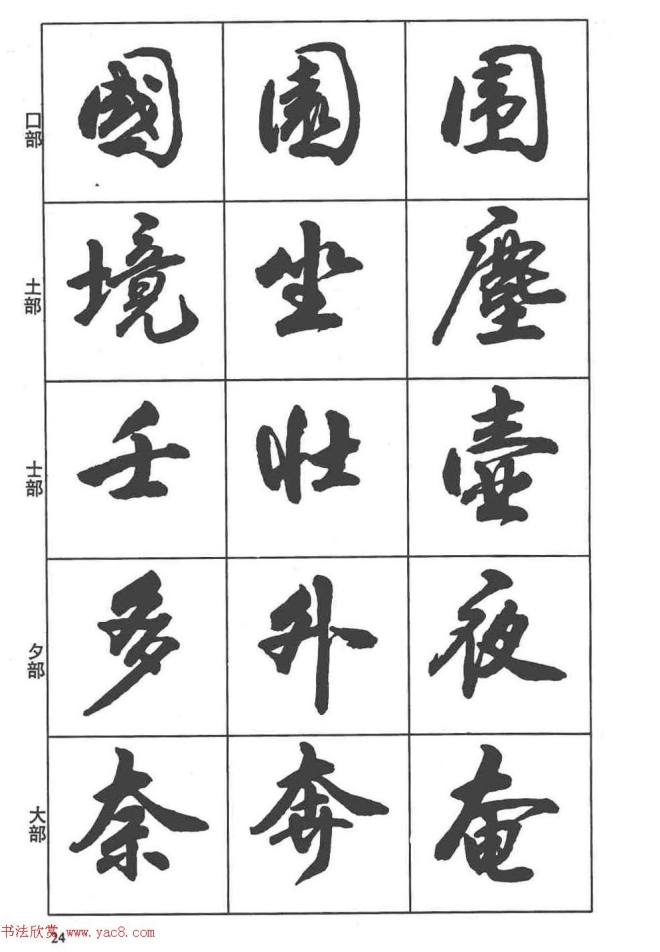 口部 國 園 围
土部 境 坐 塵
士部 壬 壮 壺
夕部 多 外 夜
大部 奈 奔 奄
24
书法欣赏 www.yac8.com